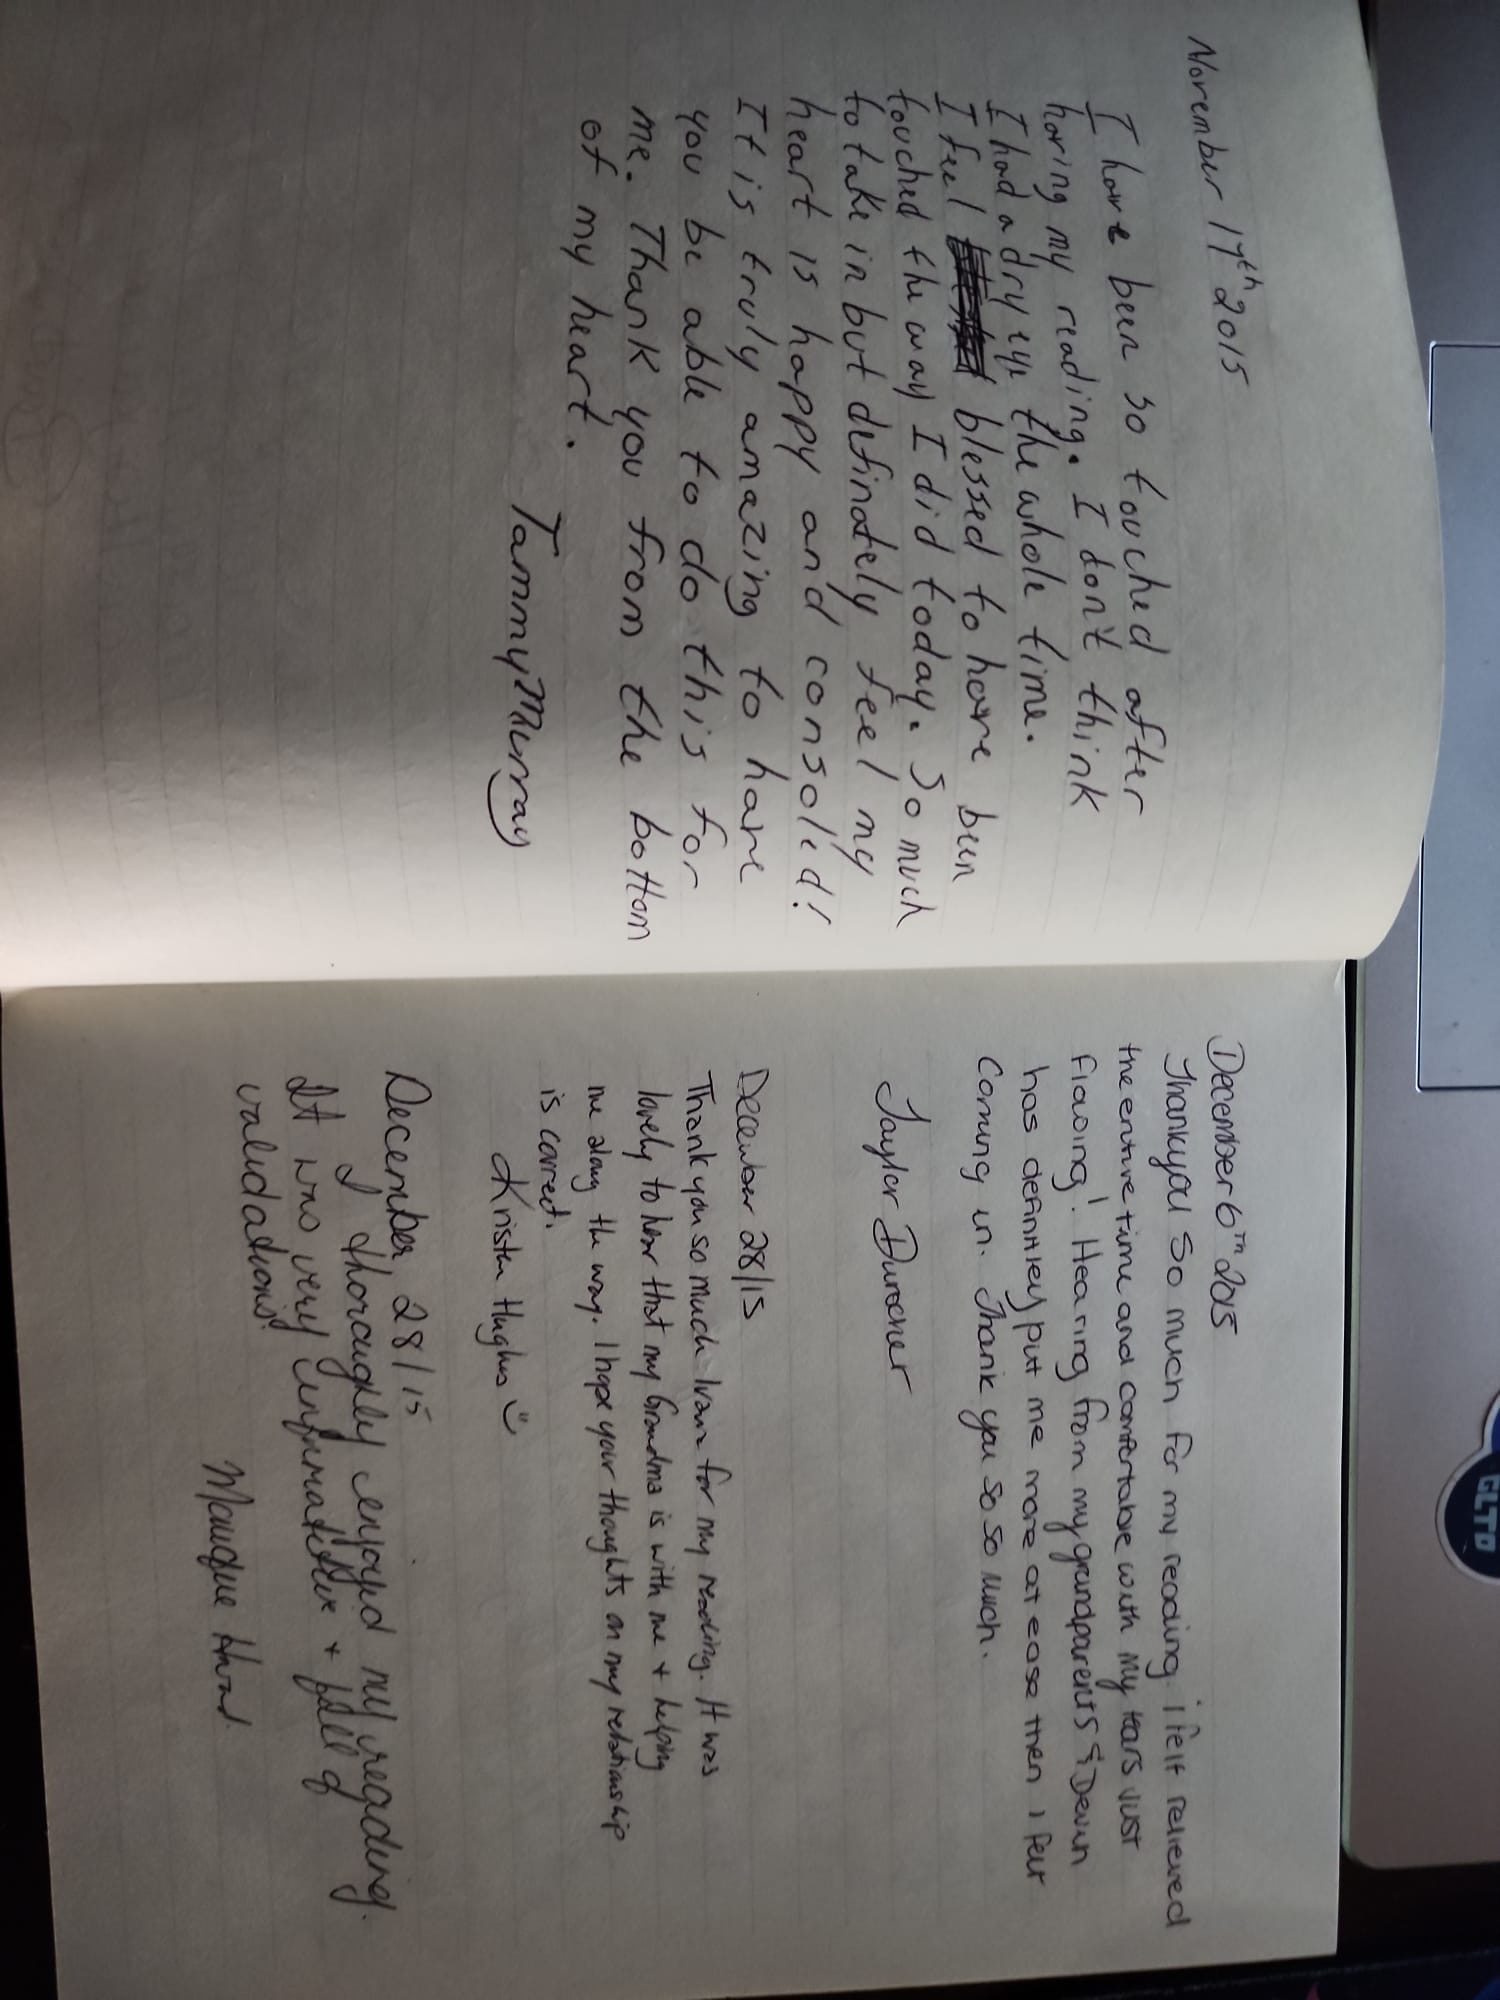 November 17th 2015
I have been so touched after
having my reading. I don't think
I had a dry eye the whole time.
I feel blessed to have been
touched the way I did today. So much
to take in but definately feel my
heart is happy and consoled!
It is truly amazing to have
you be able to do this for
me. Thank you from the bottom
of my heart.
Tammy Murray
December 6th 2015
Thankyou so much for my reading. i felt relieved
the entire time and comfortable with my tears just
flowing! Hearing from my grandparents & Devin
has definitley put me more at ease then I felt
coming in. Thank you so so much.
Taylor Durocher
December 28/15
Thank you so much for my reading. It was
lovely to hear that my Grandma is with me + helping
me along the way. I hope your thoughts on my relationship
is correct.
Kristen Hughes
December, 28/15
I thoroughly enjoyed my reading.
It was very informative + full of
validations!
Monique
GLTD